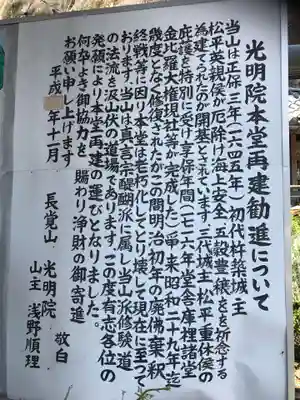 光明院本堂再建勧進について
当山は正保三年(一六四五年)初代杵築城主
松平英親侯が厄除け海上安全五穀豊穣を祈念する
為建てられたのが開基とされています三代城主松平重休侯の
庇護を特別に受け享保年間(一七一六年堂舎庫裡諸堂
金比羅大権現社等が完成した)
幾度となく修復されたがこの間明治初年の廃佛棄釈
終戦等に因り本堂は老朽化してとり壊して現在に至って
おります。当山は真言宗醍醐派に属し当山派修験道
の法流を汲山伏の道場であります。この度有志各位の
発願により本堂再建の運びとなりました。
何卒よき御協力を賜わり浄財の御寄進
お願い申し上げます 敬白
平成 年十一月
長覚山 光明院
山主 浅野順理